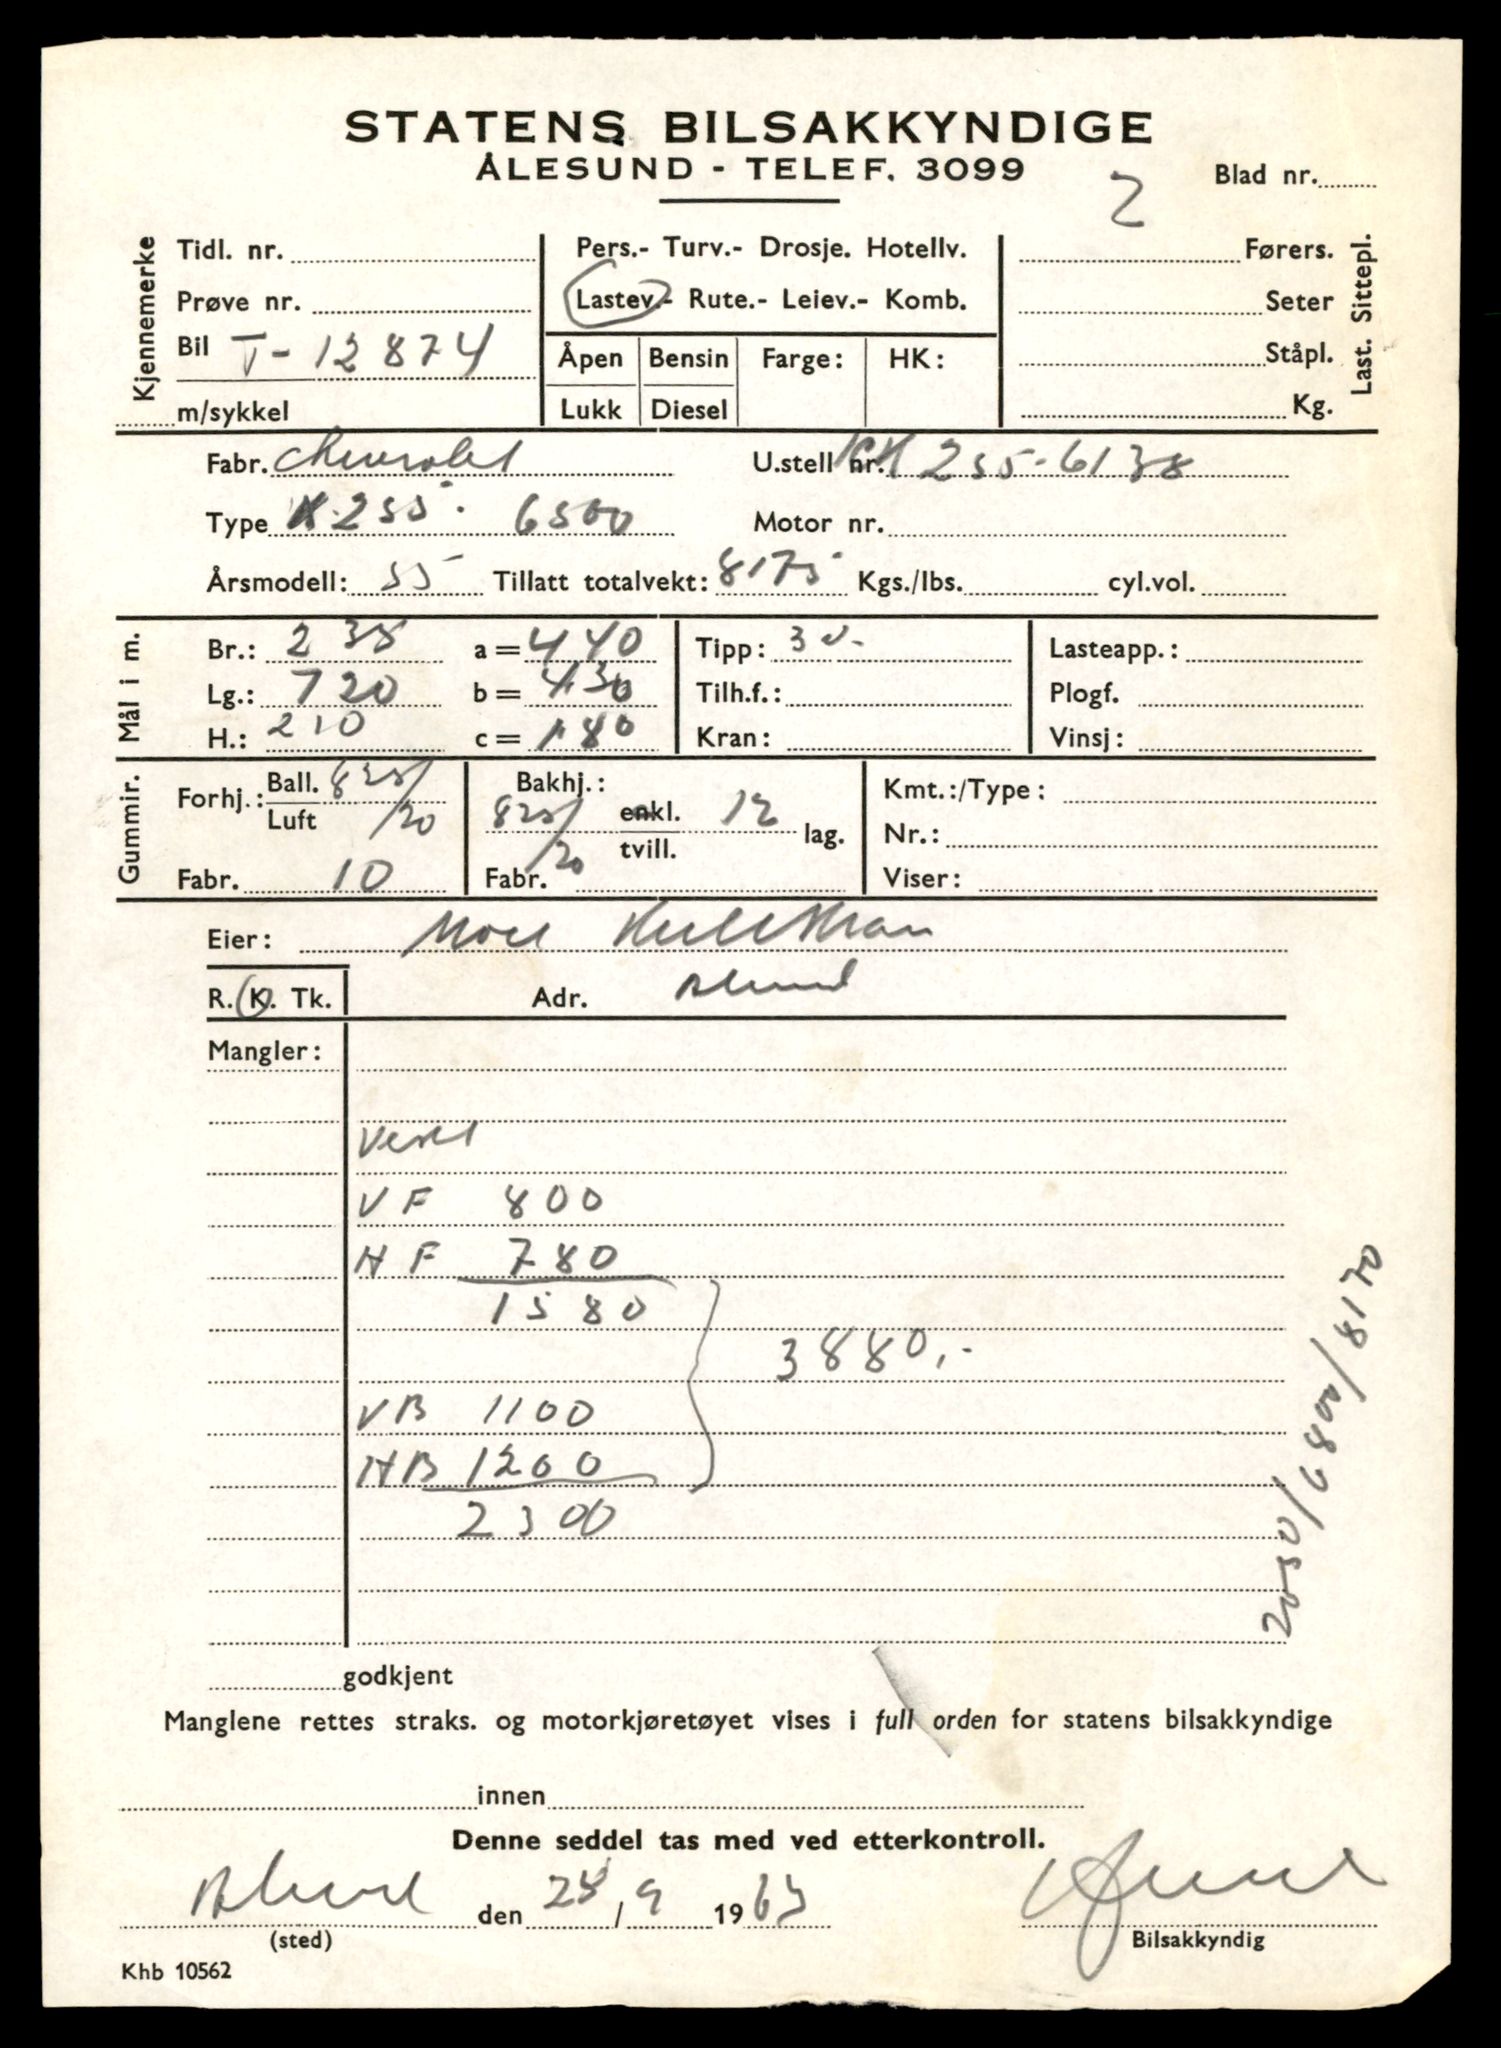 STATENS BILSAKKYNDIGE
ÅLESUND - TELEF. 3099
2 Blad nr.
Kjennemerke
Tidl. nr.
Prøve nr.
Bil T-12874
m/sykkel
Pers.- Turv.- Drosje. Hotellv.
Lastev.- Rute.- Leiev.- Komb.
Åpen Bensin Farge: HK:
Lukk Diesel
Førers.
Seter
Ståpl.
Kg.
Last. Sittepl.
Fabr. Chevrolet U.stell nr. 255-6138
Type K 255. 6500 Motor nr.
Årsmodell: 55 Tillatt totalvekt: 8175 Kgs./lbs. cyl.vol.
Mål i m.
Br.: 238 a = 440 Tipp: 3 v. Lasteapp.:
Lg.: 720 b = 430 Tilh.f.: Plogf.
H.: 210 c = 180 Kran: Vinsj:
Gummir.
Forhj.: Ball. 825/20
Luft
Fabr. 10
Bakhj.:
825/20 enkl. 12 lag.
tvill.
Fabr.
Kmt.:/Type:
Nr.:
Viser:
Eier:
R. K. Tk. Adr.
Mangler:
VF 800
HF 780
1580
3880,-
VB 1100
HB 1200
2300
2050/6800/8170
godkjent
Manglene rettes straks. og motorkjøretøyet vises i full orden for statens bilsakkyndige
innen
Denne seddel tas med ved etterkontroll.
den 25/9 1963
(sted) Bilsakkyndig
Khb 10562